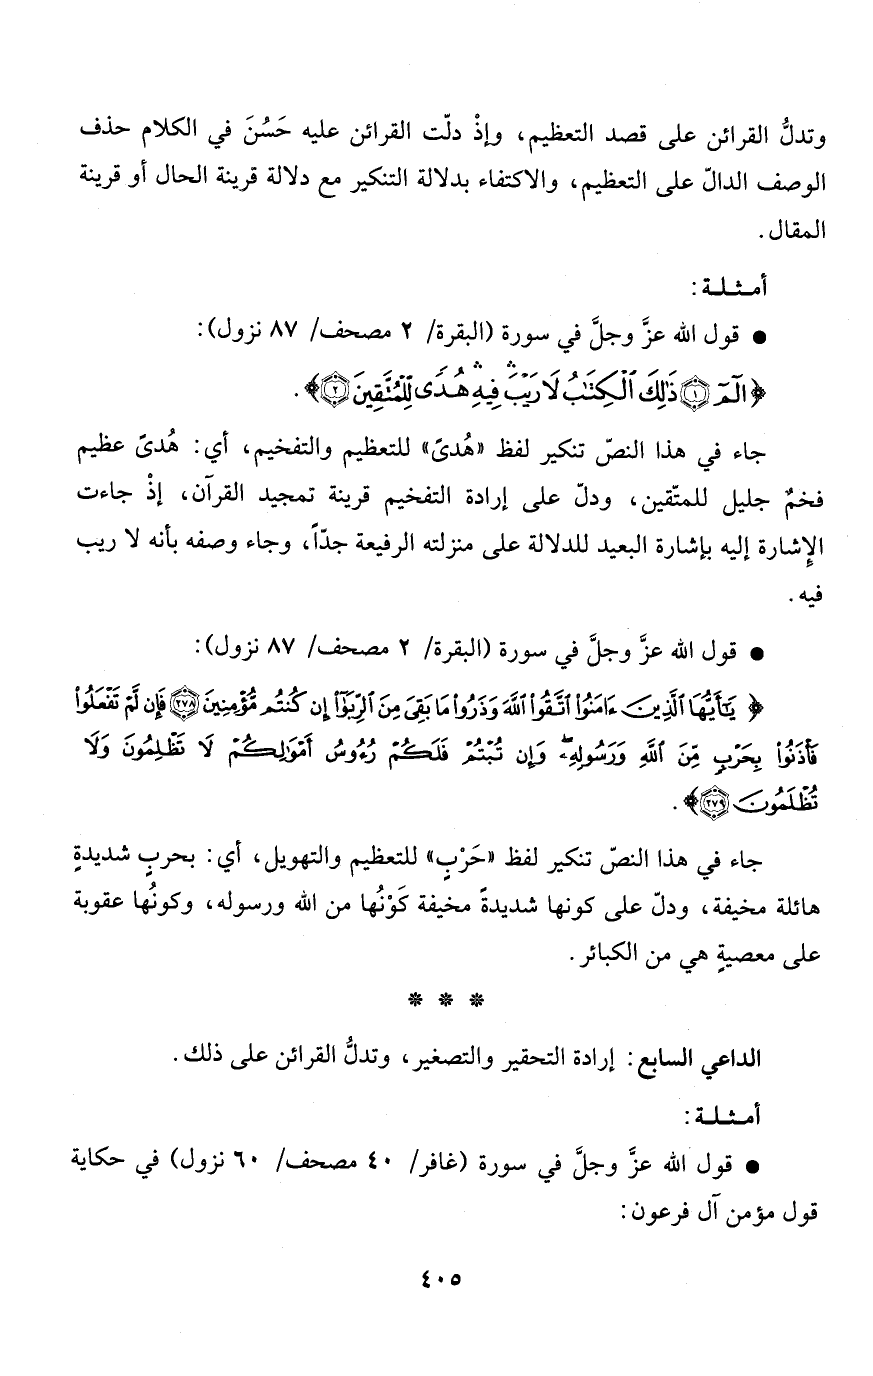 وتدلُّ القرائن على قصد التعظيم، وإذْ دلّت القرائن عليه حَسُنَ في الكلام حذف
الوصف الدالّ على التعظيم، والاكتفاء بدلالة التنكير مع دلالة قرينة الحال أو قرينة
المقال.
أمثلة:
● قول الله عزَّ وجلَّ في سورة (البقرة/ ٢ مصحف/ ٨٧ نزول):
﴿الٓمٓ ١ ذَٰلِكَ ٱلْكِتَٰبُ لَا رَيْبَ ۛ فِيهِ ۛ هُدًى لِّلْمُتَّقِينَ ٢﴾.
جاء في هذا النصّ تنكير لفظ «هُدىً» للتعظيم والتفخيم، أي: هُدىً عظيم
فخمٌ جليل للمتّقين، ودلّ على إرادة التفخيم قرينة تمجيد القرآن، إذْ جاءت
الإِشارة إليه بإشارة البعيد للدلالة على منزلته الرفيعة جدّاً، وجاء وصفه بأنه لا ريب
فيه.
● قول الله عزَّ وجلَّ في سورة (البقرة/ ٢ مصحف/ ٨٧ نزول):
﴿يَٰٓأَيُّهَا ٱلَّذِينَ ءَامَنُوا۟ ٱتَّقُوا۟ ٱللَّهَ وَذَرُوا۟ مَا بَقِىَ مِنَ ٱلرِّبَوٰٓا۟ إِن كُنتُم مُّؤْمِنِينَ ٢٧٨ فَإِن لَّمْ تَفْعَلُوا۟
فَأْذَنُوا۟ بِحَرْبٍ مِّنَ ٱللَّهِ وَرَسُولِهِۦ وَإِن تُبْتُمْ فَلَكُمْ رُءُوسُ أَمْوَٰلِكُمْ لَا تَظْلِمُونَ وَلَا
تُظْلَمُونَ ٢٧٩﴾.
جاء في هذا النصّ تنكير لفظ «حَرْبٍ» للتعظيم والتهويل، أي: بحربٍ شديدةٍ
هائلة مخيفة، ودلّ على كونها شديدةً مخيفة كَوْنُها من الله ورسوله، وكونُها عقوبة
على معصيةٍ هي من الكبائر.
* * *
الداعي السابع: إرادة التحقير والتصغير، وتدلُّ القرائن على ذلك.
أمثلة:
● قول الله عزَّ وجلَّ في سورة (غافر/ ٤٠ مصحف/ ٦٠ نزول) في حكاية
قول مؤمن آل فرعون:
٤٠٥